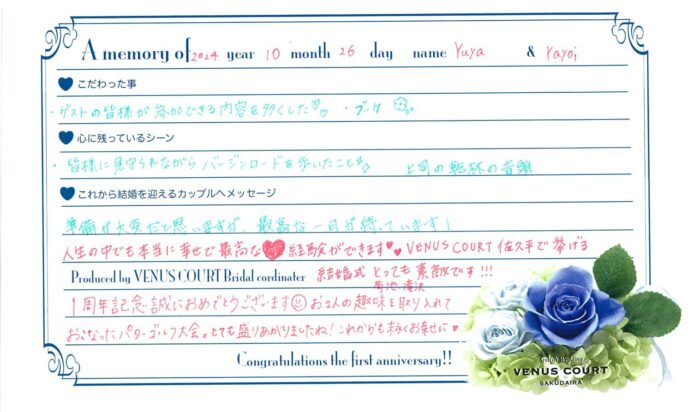 A memory of 2024 year 10 month 26 day name Yuya & Yayoi
こだわった事
・ゲストの皆様が参加できる内容を多くした♡♡ ・ブーケ
心に残っているシーン
・皆様に見守られながらバージンロードを歩いたこと 上司の乾杯の音頭
これから結婚を迎えるカップルへメッセージ
準備が大変だと思いますが、最高な一日が待っています!
人生の中でも本当に幸せで最高な♥経験ができます♥♥ VENUS COURT 佐久平で挙げる
Produced by VENUS COURT Bridal cordinater 結婚式 とっても素敵です!!!
菊池・滝沢
1周年記念誠におめでとうございます☺お2人の趣味を取り入れて
おこなったパターゴルフ大会。とても盛りあがりましたね!これからも末永くお幸せに♥
Congratulations the first anniversary!!
VENUS COURT
SAKUDAIRA